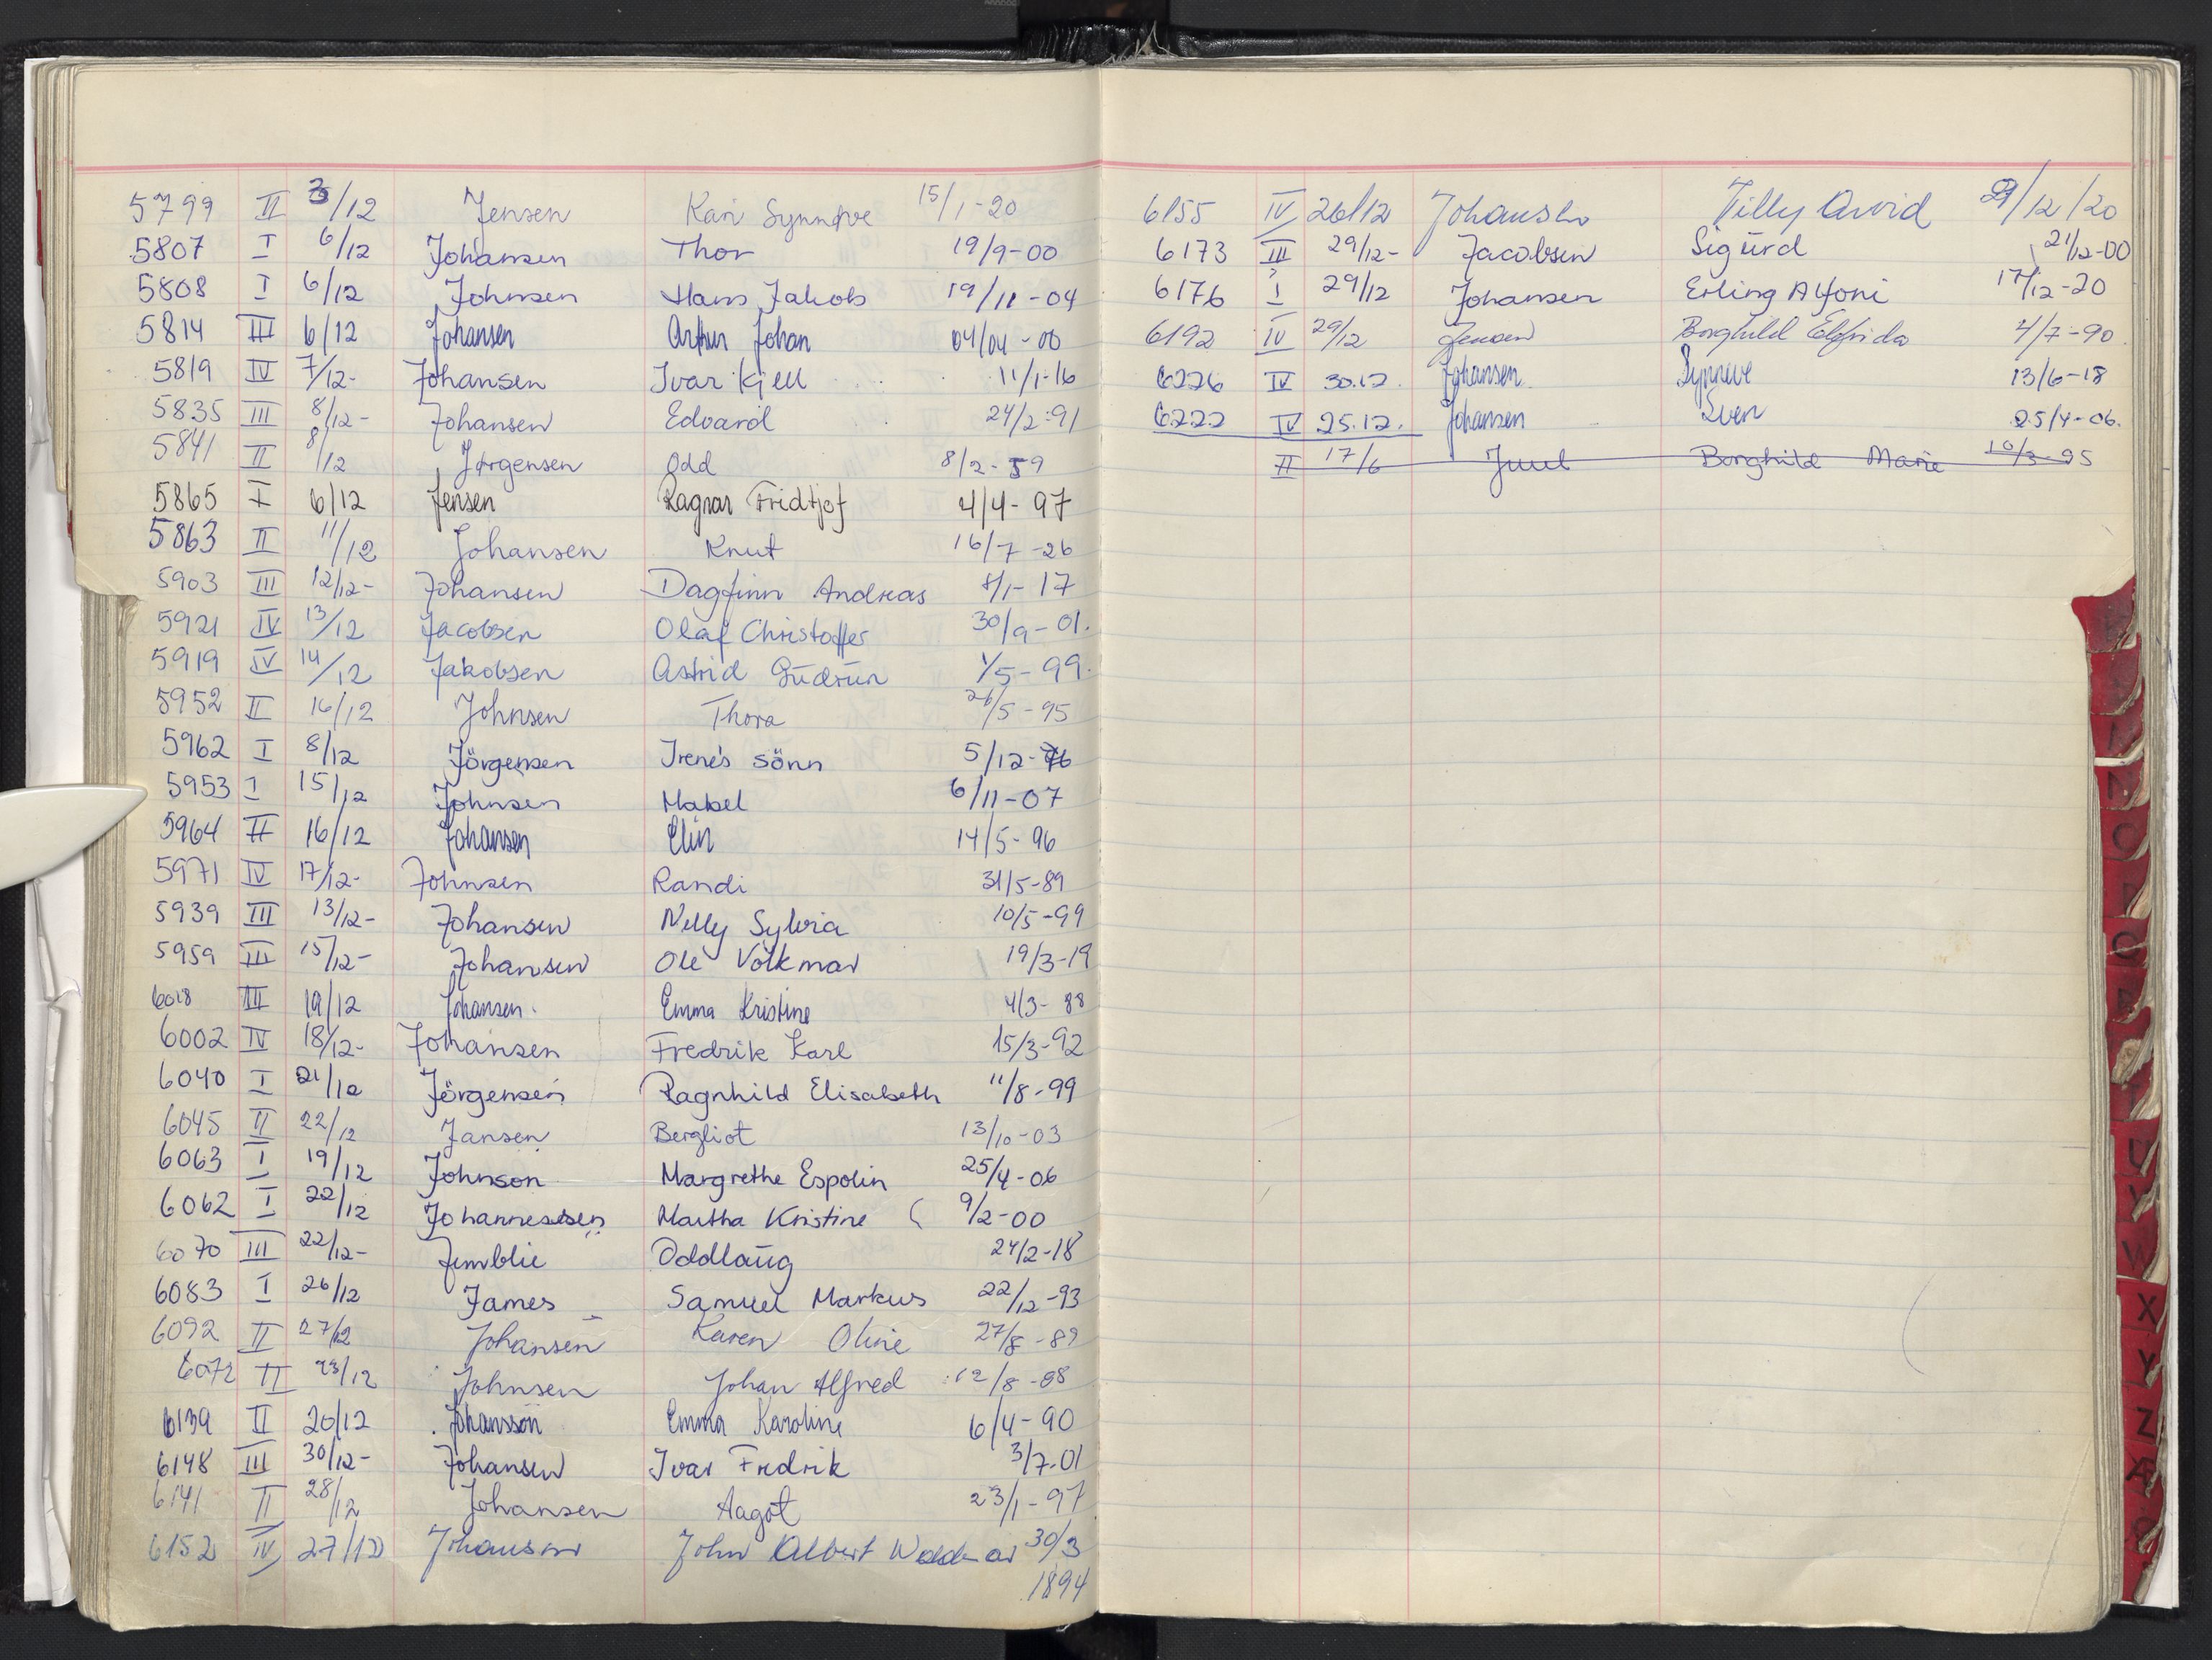 5799 II 3/12 Jensen Kari Synnøve 15/1-20
5807 I 6/12 Johansen Thor 19/9-00
5808 I 6/12 Johnsen Hans Jakob 19/11-04
5814 III 6/12 Johansen Arthur Johan 04/04-00
5819 IV 7/12- Johansen Ivar Kjell 11/1-16
5835 III 8/12- Johansen Edvard 24/2-91
5841 II 8/12 Jørgensen Odd 8/2-59
5865 I 6/12 Jensen Ragnar Fridtjof 4/4-97
5863 II 11/12 Johansen Knut 16/7-26
5903 III 12/12- Johansen Dagfinn Andreas 8/1-17
5921 IV 13/12 Jacobsen Olaf Christoffer 30/9-01.
5919 IV 14/12 Jakobsen Astrid Gudrun 1/5-99.
5952 II 16/12 Johnsen Thora 26/5-95
5962 I 8/12 Jörgensen Irene's sönn 5/12-76
5953 I 15/12 Johnsen Mabel 6/11-07
5964 II 16/12 Johansen Elin 14/5-96
5971 IV 17/12- Johnsen Randi 31/5-89
5939 III 13/12- Johansen Nelly Sylvia 10/5-99
5959 III 15/12- Johansen Ole Volkmar 19/3-19
6018 III 19/12 Johansen Emma Kristine 4/3-88
6002 IV 18/12- Johansen Fredrik Karl 15/3-92
6040 I 21/12 Jörgensen Ragnhild Elisabeth 11/8-99
6045 II 22/12 Jansen Bergliot 13/10-03
6063 I 19/12 Johnson Margrethe Espolin 25/4-06
6062 I 22/12 Johannessen Martha Kristine 9/2-00
6070 III 22/12- Jemblie Oddlaug 24/2-18
6083 I 26/12 James Samuel Markus 22/12-93
6092 II 27/12 Johansen Karen Oline 27/8-89
6072 II 23/12 Johnsen Johan Alfred 12/8-08
6139 II 20/12 Johansson Emma Karoline 6/4-90
6148 III 30/12- Johansen Ivar Fredrik 3/7-01
6141 II 28/12 Johansen Aagot 23/1-97
6152 IV 27/12 Johansen John Albert Woldmar 30/3
1894
6155 IV 26/12 Johansen Tilly Arvid 29/12/20
6173 III 29/12- Jacobsen Sigurd 21/12-00
6176 I 29/12 Johansen Erling Alfoni 17/12-20
6192 IV 29/12 Jensen Borghild Elfrida 4/7-90
6226 IV 30.12. Johansen Synneve 13/6-18
6222 IV 25.12. Johansen Sven 25/4-06.
II 17/6 Juul Borghild Marie 10/3-95
N
O
P
Q
R
T
U
V
W
X
Y
Z
Æ
Ø